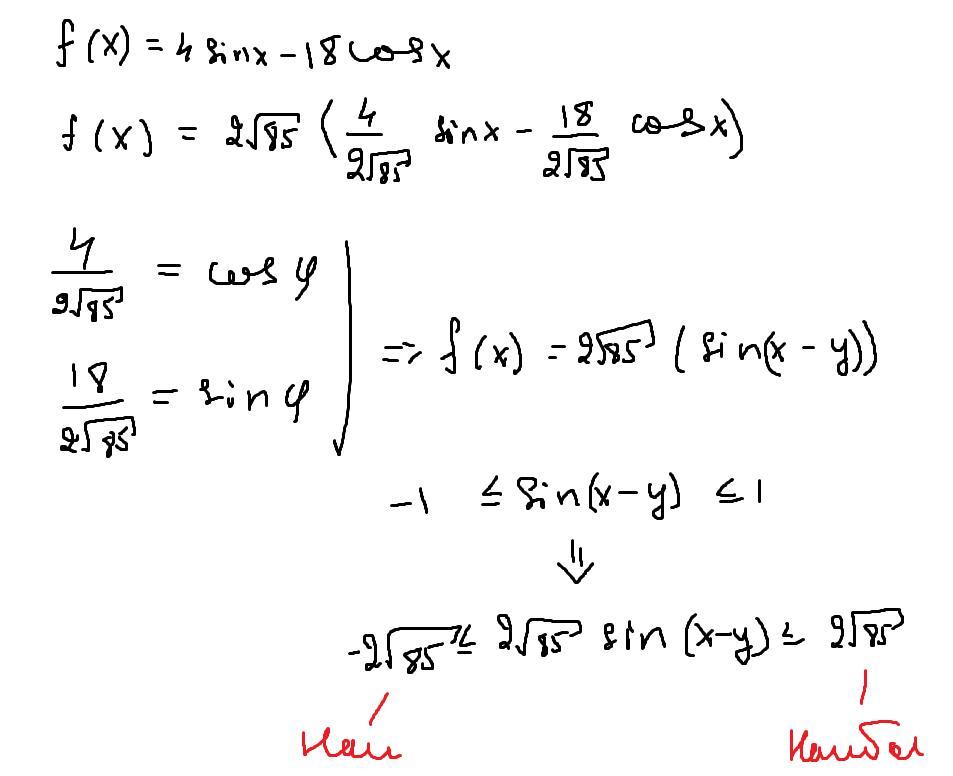 f(x) = 4 sinx - 18 cosx
f(x) = 2√85 (4/2√85 sinx - 18/2√85 cosx)
4/2√85 = cos φ
18/2√85 = sin φ
=> f(x) = 2√85 (sin(x - y))
-1 ≤ sin(x-y) ≤ 1
⇓
-2√85 ≤ 2√85 sin (x-y) ≤ 2√85
Наи Наибол